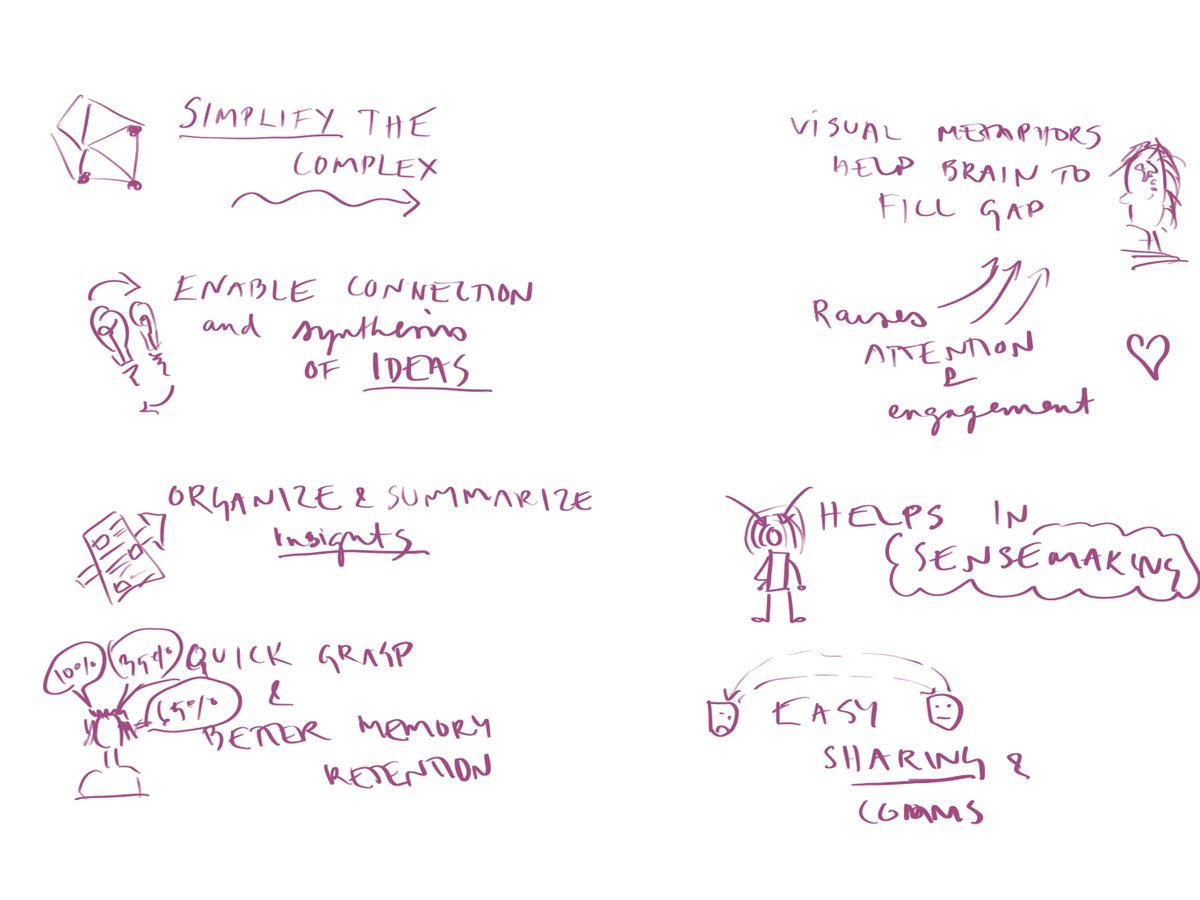 SIMPLIFY THE
COMPLEX
ENABLE CONNECTION
and synthesis
OF IDEAS
ORGANIZE & SUMMARIZE
Insights
10%
35%
65%
QUICK GRASP
&
BETTER MEMORY
RETENTION
VISUAL METAPHORS
HELP BRAIN TO
FILL GAP
Raises
ATTENTION
&
engagement
HELPS IN
SENSEMAKING
EASY
SHARING &
COMMS